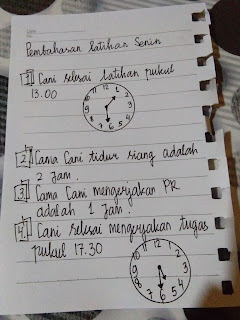 Pembahasan latihan Senin
1. Cani selesai latihan pukul
13.00
12
1
2
3
4
5
6
7
8
9
10
11
2. Lama Cani tidur siang adalah
2 Jam.
3. Lama Cani mengerjakan PR
adalah 1 Jam.
4. Cani selesai mengerjakan tugas
pukul 17.30
12
1
2
3
4
5
6
7
8
9
10
11